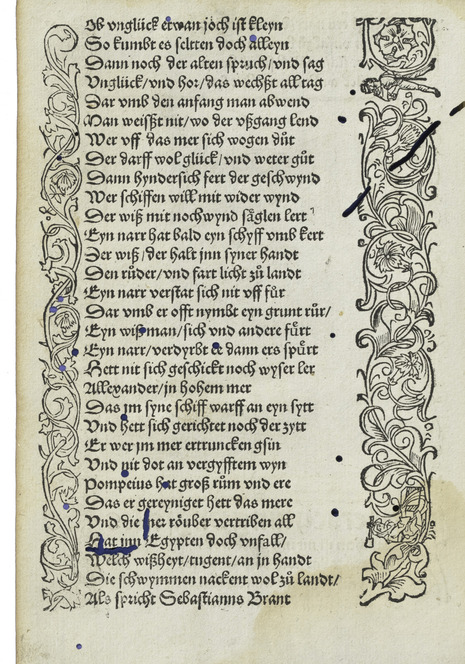 Ob vnglück etwan joch ist kleyn
So kumbt es seltten doch alleyn
Dann noch der alten spruch/vnd sag
Vnglück/vnd hor/das wechßt all tag
Dar vmb den anfang man abwend
Man weißßt nit/wo der vßgang lend
Wer vff das mer sich wogen düt
Der darff wol glück/vnd weter güt
Dann hyndersich fert der geschwynd
Wer schiffen will mit wider wynd
Der wiß mit nochwynd säglen lert
Eyn narr hat bald eyn schyff vmb kert
Der wiß/der halt jnn syner handt
Den rüder/vnd fart licht zů landt
Eyn narr verstat sich nit vff für
Dar vmb er offt nymbt eyn grunt rür/
Eyn wiß man/sich vnd andere fürt
Eyn narr/verdyrbt ee dann ers spürt
Hett nit sich geschickt noch wyser ler
Allexander/jn hohem mer
Das jm syne schiff warff an eyn sytt
Vnd hett sich gerichtet noch der zytt
Er wer jm mer ertruncken gsin
Vnd nit dot an vergyfftem wyn
Pompeius hat groß rům vnd ere
Das er gereyniget hett das mere
Vnd die mer röuber vertriben all
Hat jnn Egypten doch vnfall/
Welch wißheyt/tugent/an jn handt
Die schwymmen nackent wol zů landt/
Als spricht Sebastianus Brant